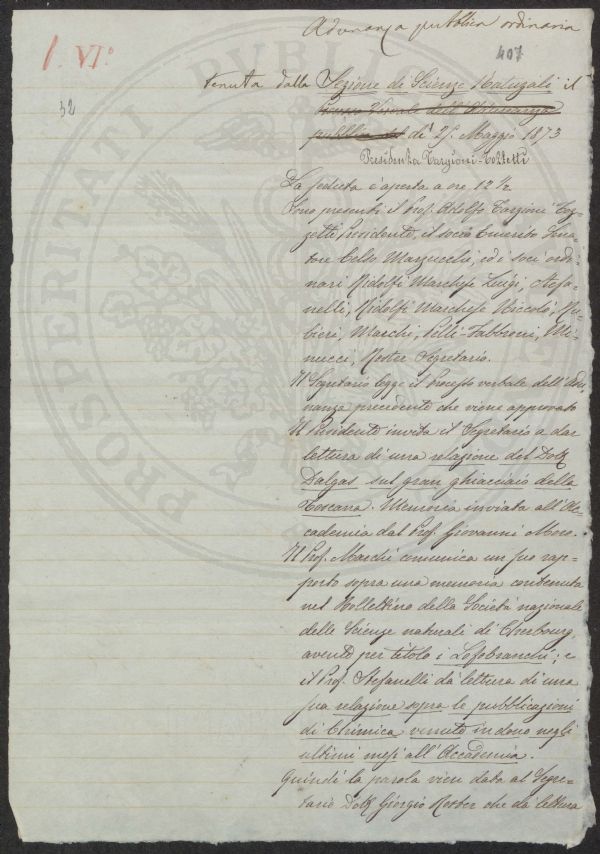 Adunanza pubblica ordinaria
I. VI°
407
tenuta dalla Sezione di Scienze Naturali il
32
Processo Verbale dell'Adunanza
pubblica del dì 25 Maggio 1873
Presidenza Targioni-Tozzetti
La seduta è aperta a ore 12 1/2
Sono presenti il Prof. Adolfo Targioni Toz-
zetti Presidente, il socio Emerito Sena-
tore Celso Marzucchi, ed i soci ordi-
nari Ridolfi Marchese Luigi, Stefa-
nelli, Ridolfi Marchese Niccolò, Ru-
bieri, Marchi, Pelli-Fabbroni, Mi-
nucci, Roster Segretario.
Il Segretario legge il Processo verbale dell'Adu-
nanza precedente che viene approvato
Il Presidente invita il Segretario a dar
lettura di una relazione del Dott.
Dalgas sul gran ghiacciaio della
Toscana. Memoria inviata all'Ac-
cademia dal Prof. Giovanni Moro.
Il Prof. Marchi comunica un suo rap-
porto sopra una memoria contenuta
nel Bollettino della Società nazionale
delle Scienze naturali di Cherbourg,
avente per titolo i Lofobranchi; e
il Prof. Stefanelli dà lettura di una
sua relazione sopra le pubblicazioni
di Chimica venute in dono negli
ultimi mesi all'Accademia.
Quindi la parola vien data al Segre-
tario Dott. Giorgio Roster che da lettura
PROSPERITATI PVBLICAE